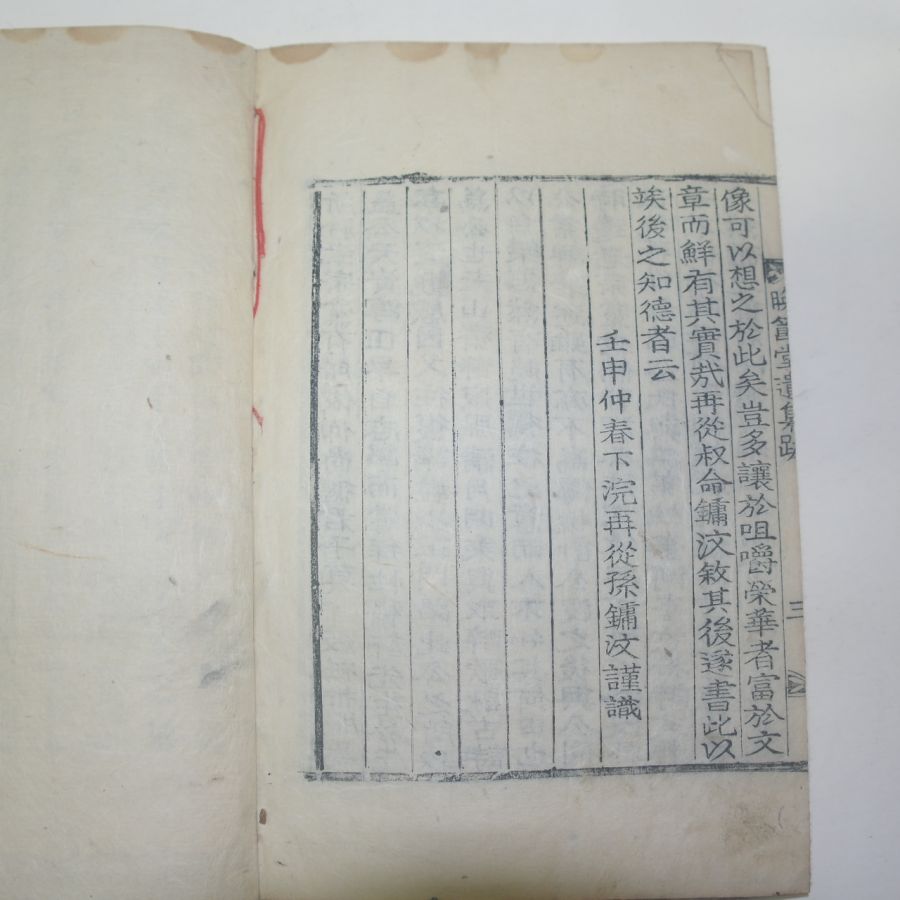 像可以想之於此矣豈多讓於咀嚼榮華者富於文
章而鮮有其實㢤再從叔命鏞汶敘其後遂書此以
竢後之知德者云
壬申仲春下浣再從孫鏞汶謹識
堂遺集跋
三